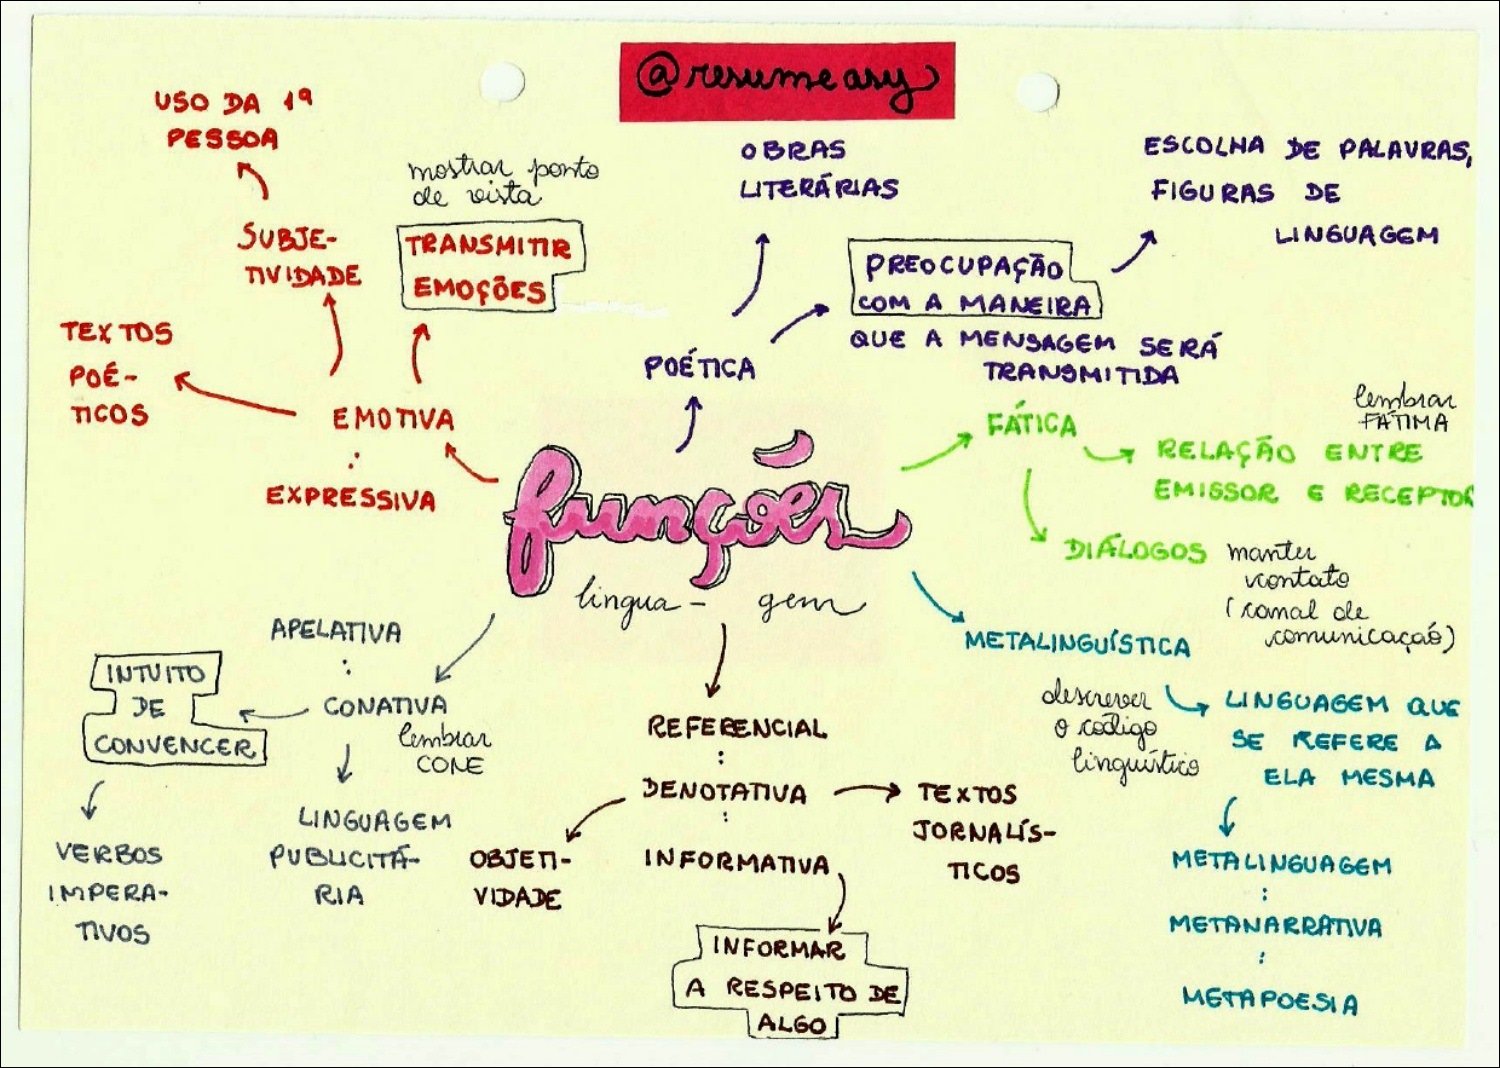 @resumeasy
USO DA 1ª
PESSOA
SUBJE-
TIVIDADE
mostrar ponto
de vista
TRANSMITIR
EMOÇÕES
TEXTOS
POÉ-
TICOS
EMOTIVA
:
EXPRESSIVA
OBRAS
LITERÁRIAS
POÉTICA
PREOCUPAÇÃO
COM A MANEIRA
QUE A MENSAGEM SERÁ
TRANSMITIDA
ESCOLHA DE PALAVRAS,
FIGURAS DE
LINGUAGEM
FÁTICA
lembrar
FÁTIMA
RELAÇÃO ENTRE
EMISSOR E RECEPTOR
DIÁLOGOS
manter
contato
(canal de
comunicação)
funções
lingua- gem
METALINGUÍSTICA
descrever
o código
linguístico
LINGUAGEM QUE
SE REFERE A
ELA MESMA
METALINGUAGEM
:
METANARRATIVA
:
METAPOESIA
APELATIVA
:
CONATIVA
lembrar
CONE
INTUITO
DE
CONVENCER
VERBOS
IMPERA-
TIVOS
LINGUAGEM
PUBLICITÁ-
RIA
REFERENCIAL
:
DENOTATIVA
:
INFORMATIVA
OBJETI-
VIDADE
TEXTOS
JORNALÍS-
TICOS
INFORMAR
A RESPEITO DE
ALGO